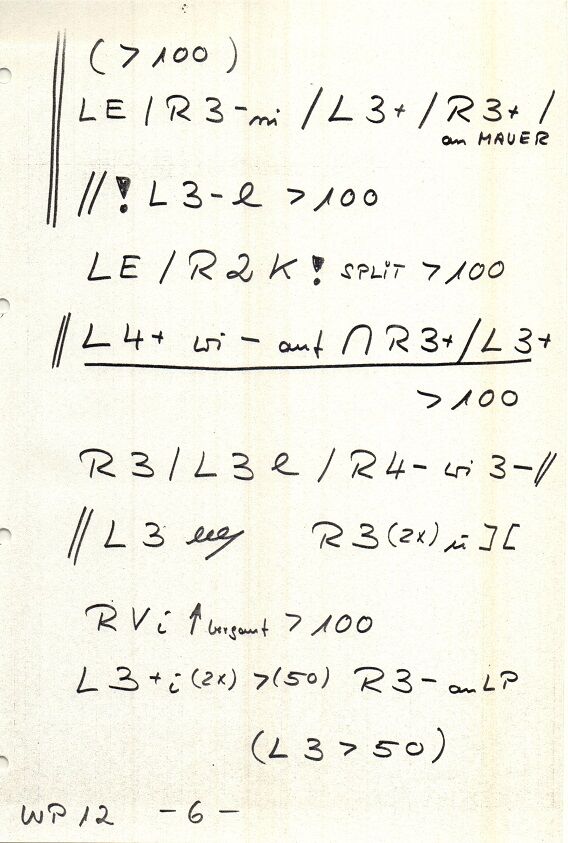 (>100)
LE/R3-mi /L3+/R3+/
an MAUER
//! L3-l >100
LE/R2K! SPLIT >100
// L4+ wi - auf ∩ R3+/L3+
>100
R3/L3l/R4- wi 3-//
// L3 R3(2x) in ][
RVi ↑ bergauf >100
L3+i(2x) >(50) R3- an LP
(L3>50)
WP12 -6-